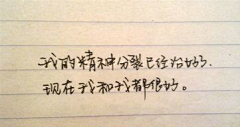 我的精神分裂已经治好了.
现在我和我都很好。